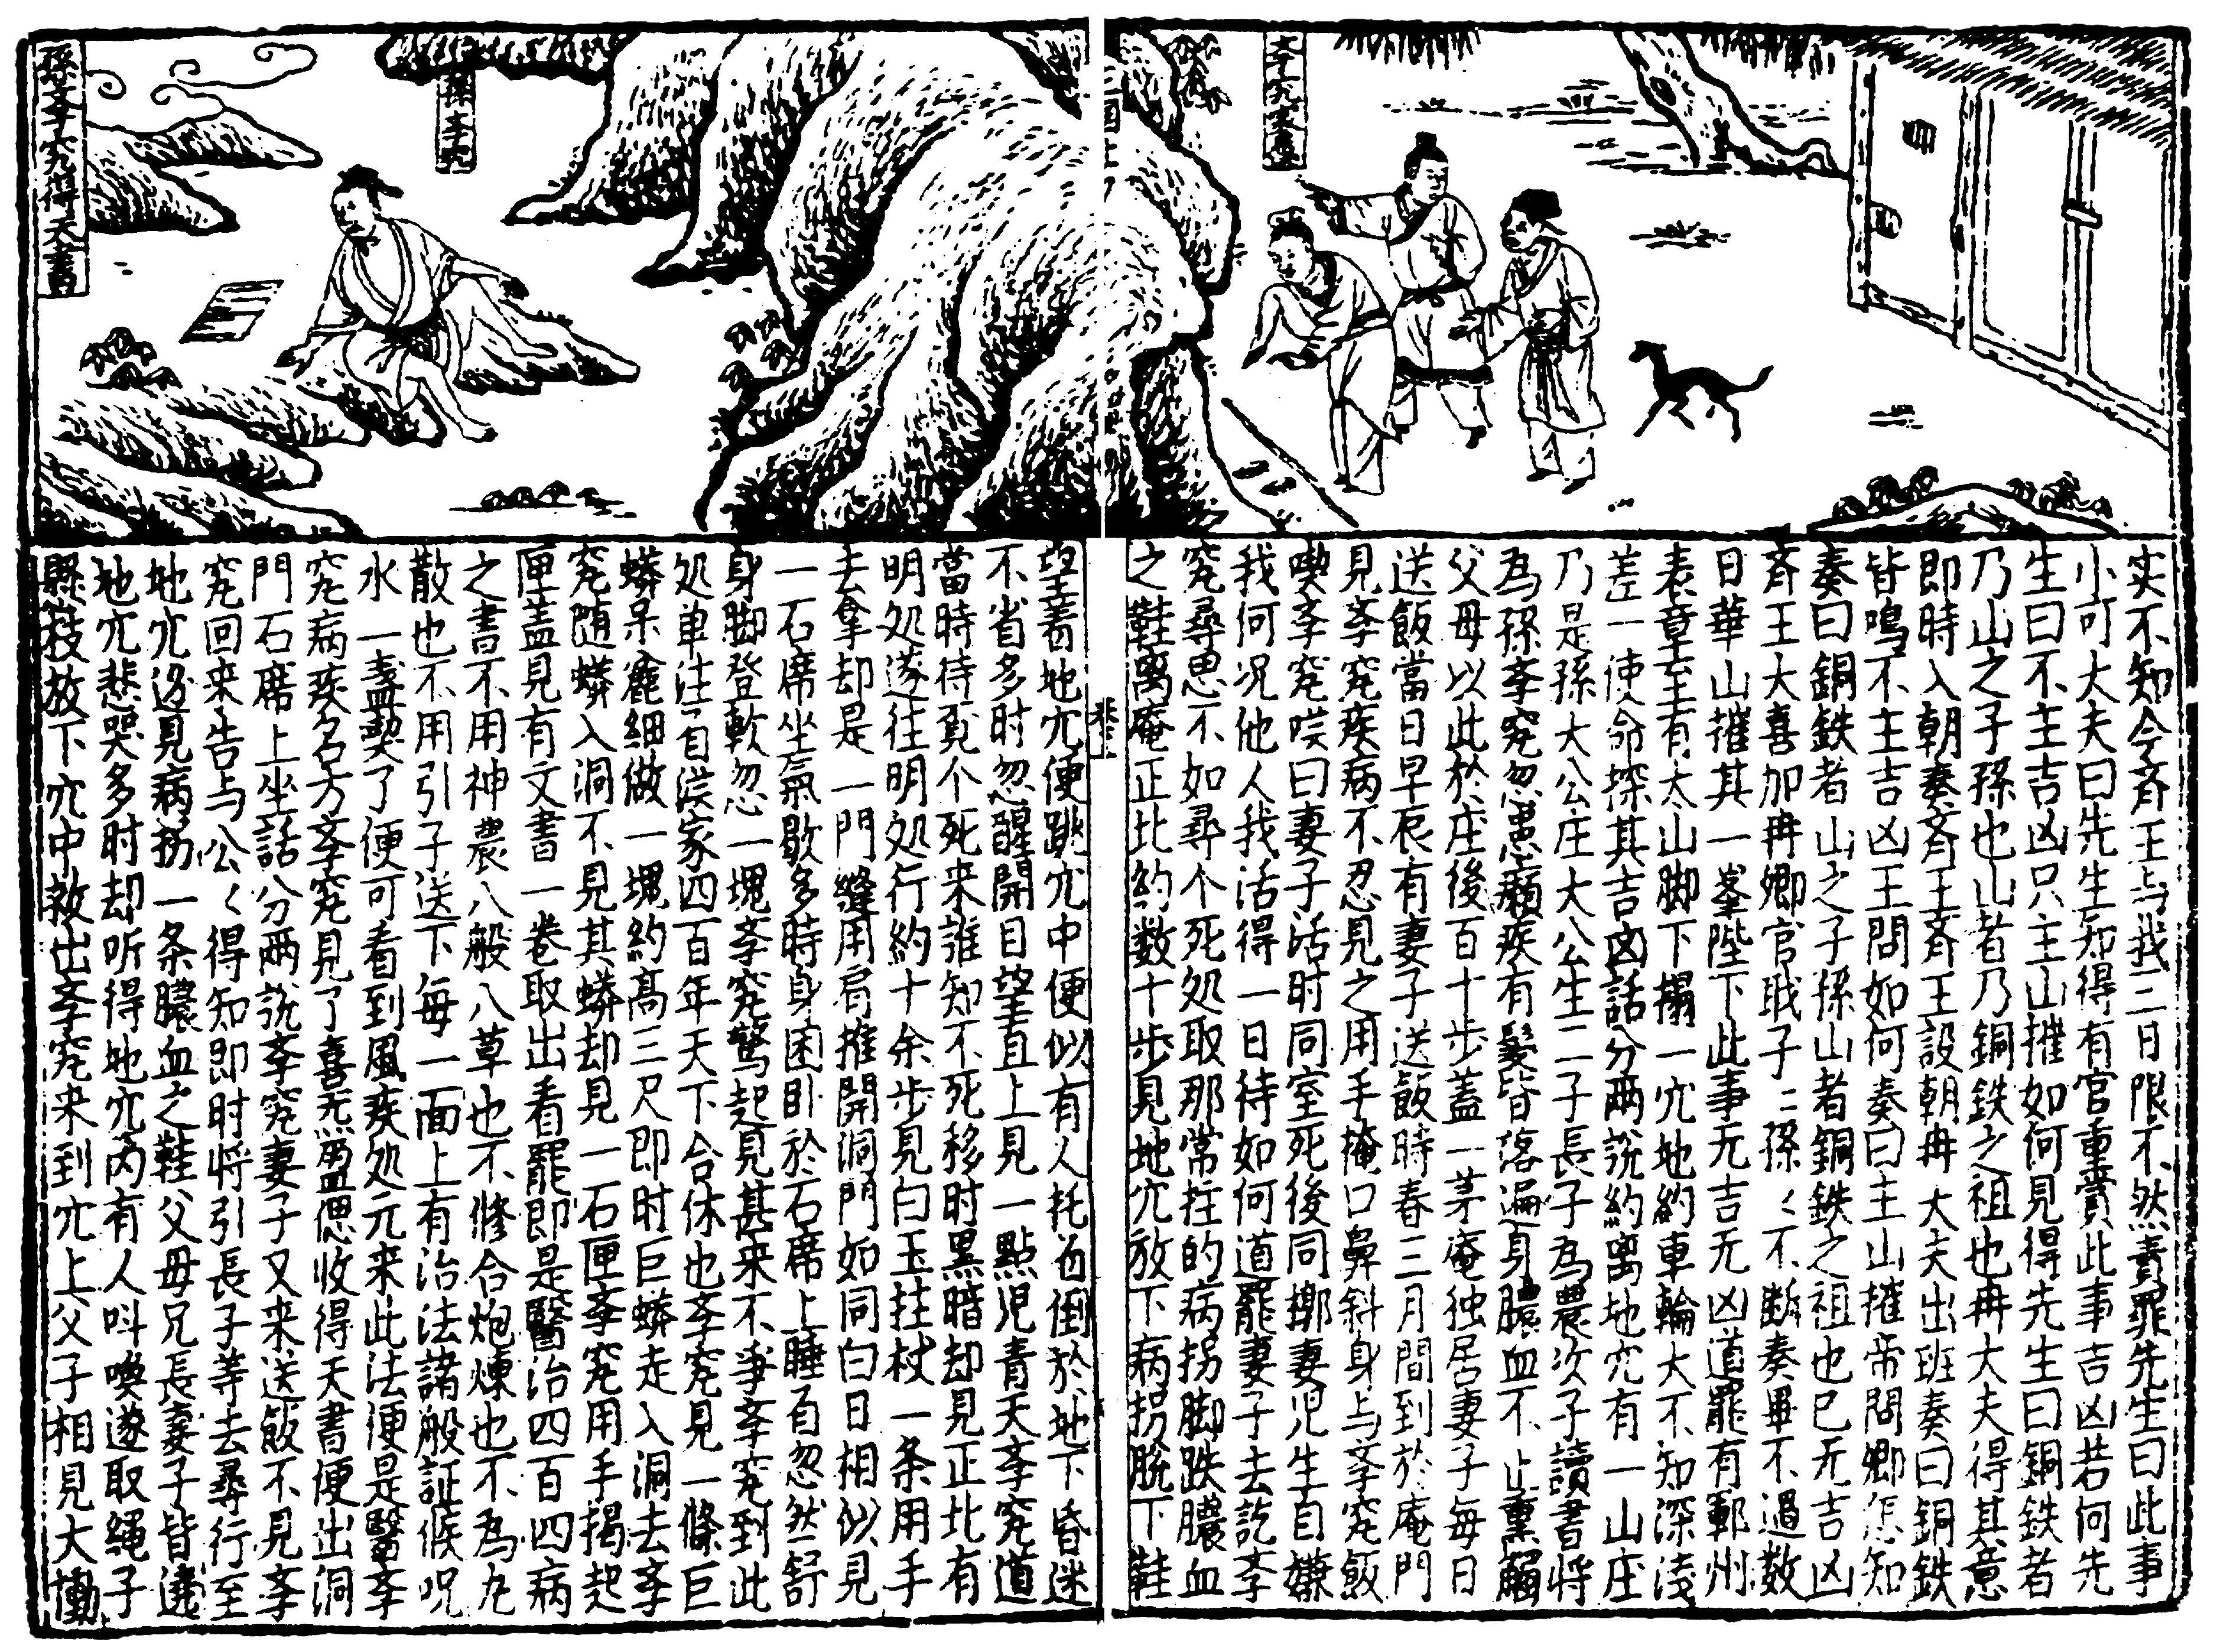 孫孝究得天書
实不知今斉王与我三日限不然責罪先生曰此事
小可大夫曰先生知得有官重賞此事吉凶若何先
生曰不主吉凶只主山摧如何見得先生曰銅鉄者
乃山之子孫也山者乃銅鉄之祖也冉大夫得其意
即時入朝奏斉王斉王設朝冉大夫出班奏曰銅鉄
皆鳴不主吉凶王問如何奏曰主山摧帝問卿怎知
奏曰銅鉄者山之子孫山者銅鉄之祖也已无吉凶
斉王大喜加冉卿官職子二孫〻不断奏畢不過数
日華山摧其一峯陛下此事无吉无凶道罷有鄆州
表章至有太山脚下摺一穴地約車輪大不知深浅
差一使命探其吉凶話分兩説約离地穴有一山庄
乃是孫大公庄大公生二子長子為農次子讀書将
為孫孝究忽患癩疾有髮皆落遍身膿血不止熏觸
父母以此於庄後百十步蓋一茅庵独居妻子每日
送飯當日早辰有妻子送飯時春三月間到於庵門
見孝究疾病不忍見之用手掩口鼻斜身与孝究飯
喫孝究嘆曰妻子活时同室死後同槨妻児生自嫌
我何况他人我活得一日待如何道罷妻子去訖孝
究尋思不如尋个死処取那常拄的病拐脚跌膿血
之鞋离庵正北約数十步見地穴放下病拐脱下鞋
望着地穴便跳穴中便似有人托着倒於地下昏迷
不省多时忽醒開目望直上見一點児青天孝究道
當時待覓个死来誰知不死移时黒暗却見正北有
明処遂往明処行約十余步見白玉拄杖一条用手
去拿却是一門縫用肩推開洞門如同白日相似見
一石席坐氣歇多時身困卧於石席上睡着忽然舒
身脚登軟忽一塊孝究驚起見甚来不争孝究到此
処単注着漢家四百年天下合休也孝究見一條巨
蟒呆麄細做一塊約高三尺即时巨蟒走入洞去孝
究随蟒入洞不見其蟒却見一石匣孝究用手揭起
匣蓋見有文書一巻取出看罷即是醫治四百四病
之書不用神農八般八草也不修合炮煉也不為丸
散也不用引子送下每一面上有治法諸般証候咒
水一盞喫了便可看到風疾処元来此法便是醫孝
究病疾名方孝究見了喜无盈偲收得天書便出洞
門石席上坐話分兩説孝究妻子又来送飯不見孝
究回来告与公〻得知即时将引長子等去尋行至
地穴邊見病拐一条膿血之鞋父母兄長妻子皆遶
地穴悲哭多时却听得地穴内有人呌喚遂取縄子
縣枝放下穴中救出孝究来到穴上父子相見大慟